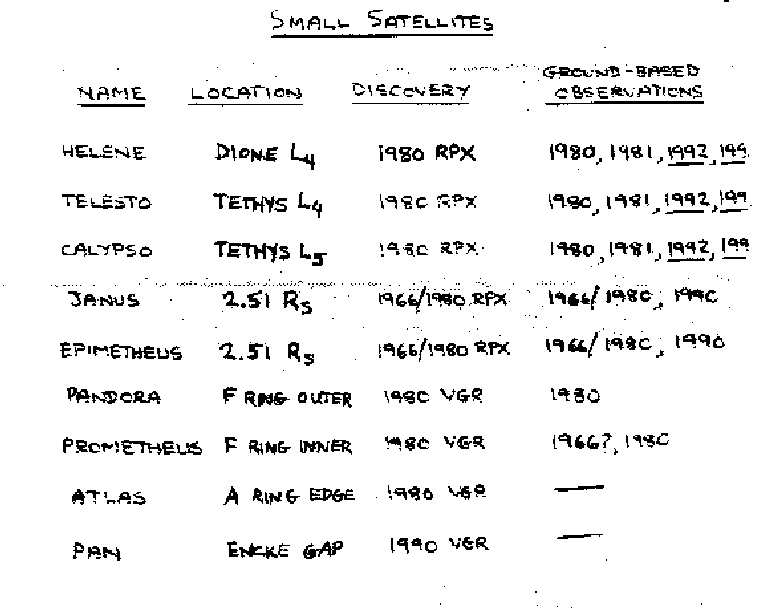 SMALL SATELLITES
GROUND-BASED
NAME LOCATION DISCOVERY OBSERVATIONS
HELENE DIONE L4 1980 RPX 1980, 1981, 1992, 199
TELESTO TETHYS L4 1980 RPX 1980, 1981, 1992, 199
CALYPSO TETHYS L5 1980 RPX 1980, 1981, 1992, 199
JANUS 2.51 RS 1966/1980 RPX 1966/1980, 1990
EPIMETHEUS 2.51 RS 1966/1980 RPX 1966/1980, 1990
PANDORA F RING OUTER 1980 VGR 1980
PROMETHEUS F RING INNER 1980 VGR 1966?, 1980
ATLAS A RING EDGE 1980 VGR —
PAN ENCKE GAP 1990 VGR —